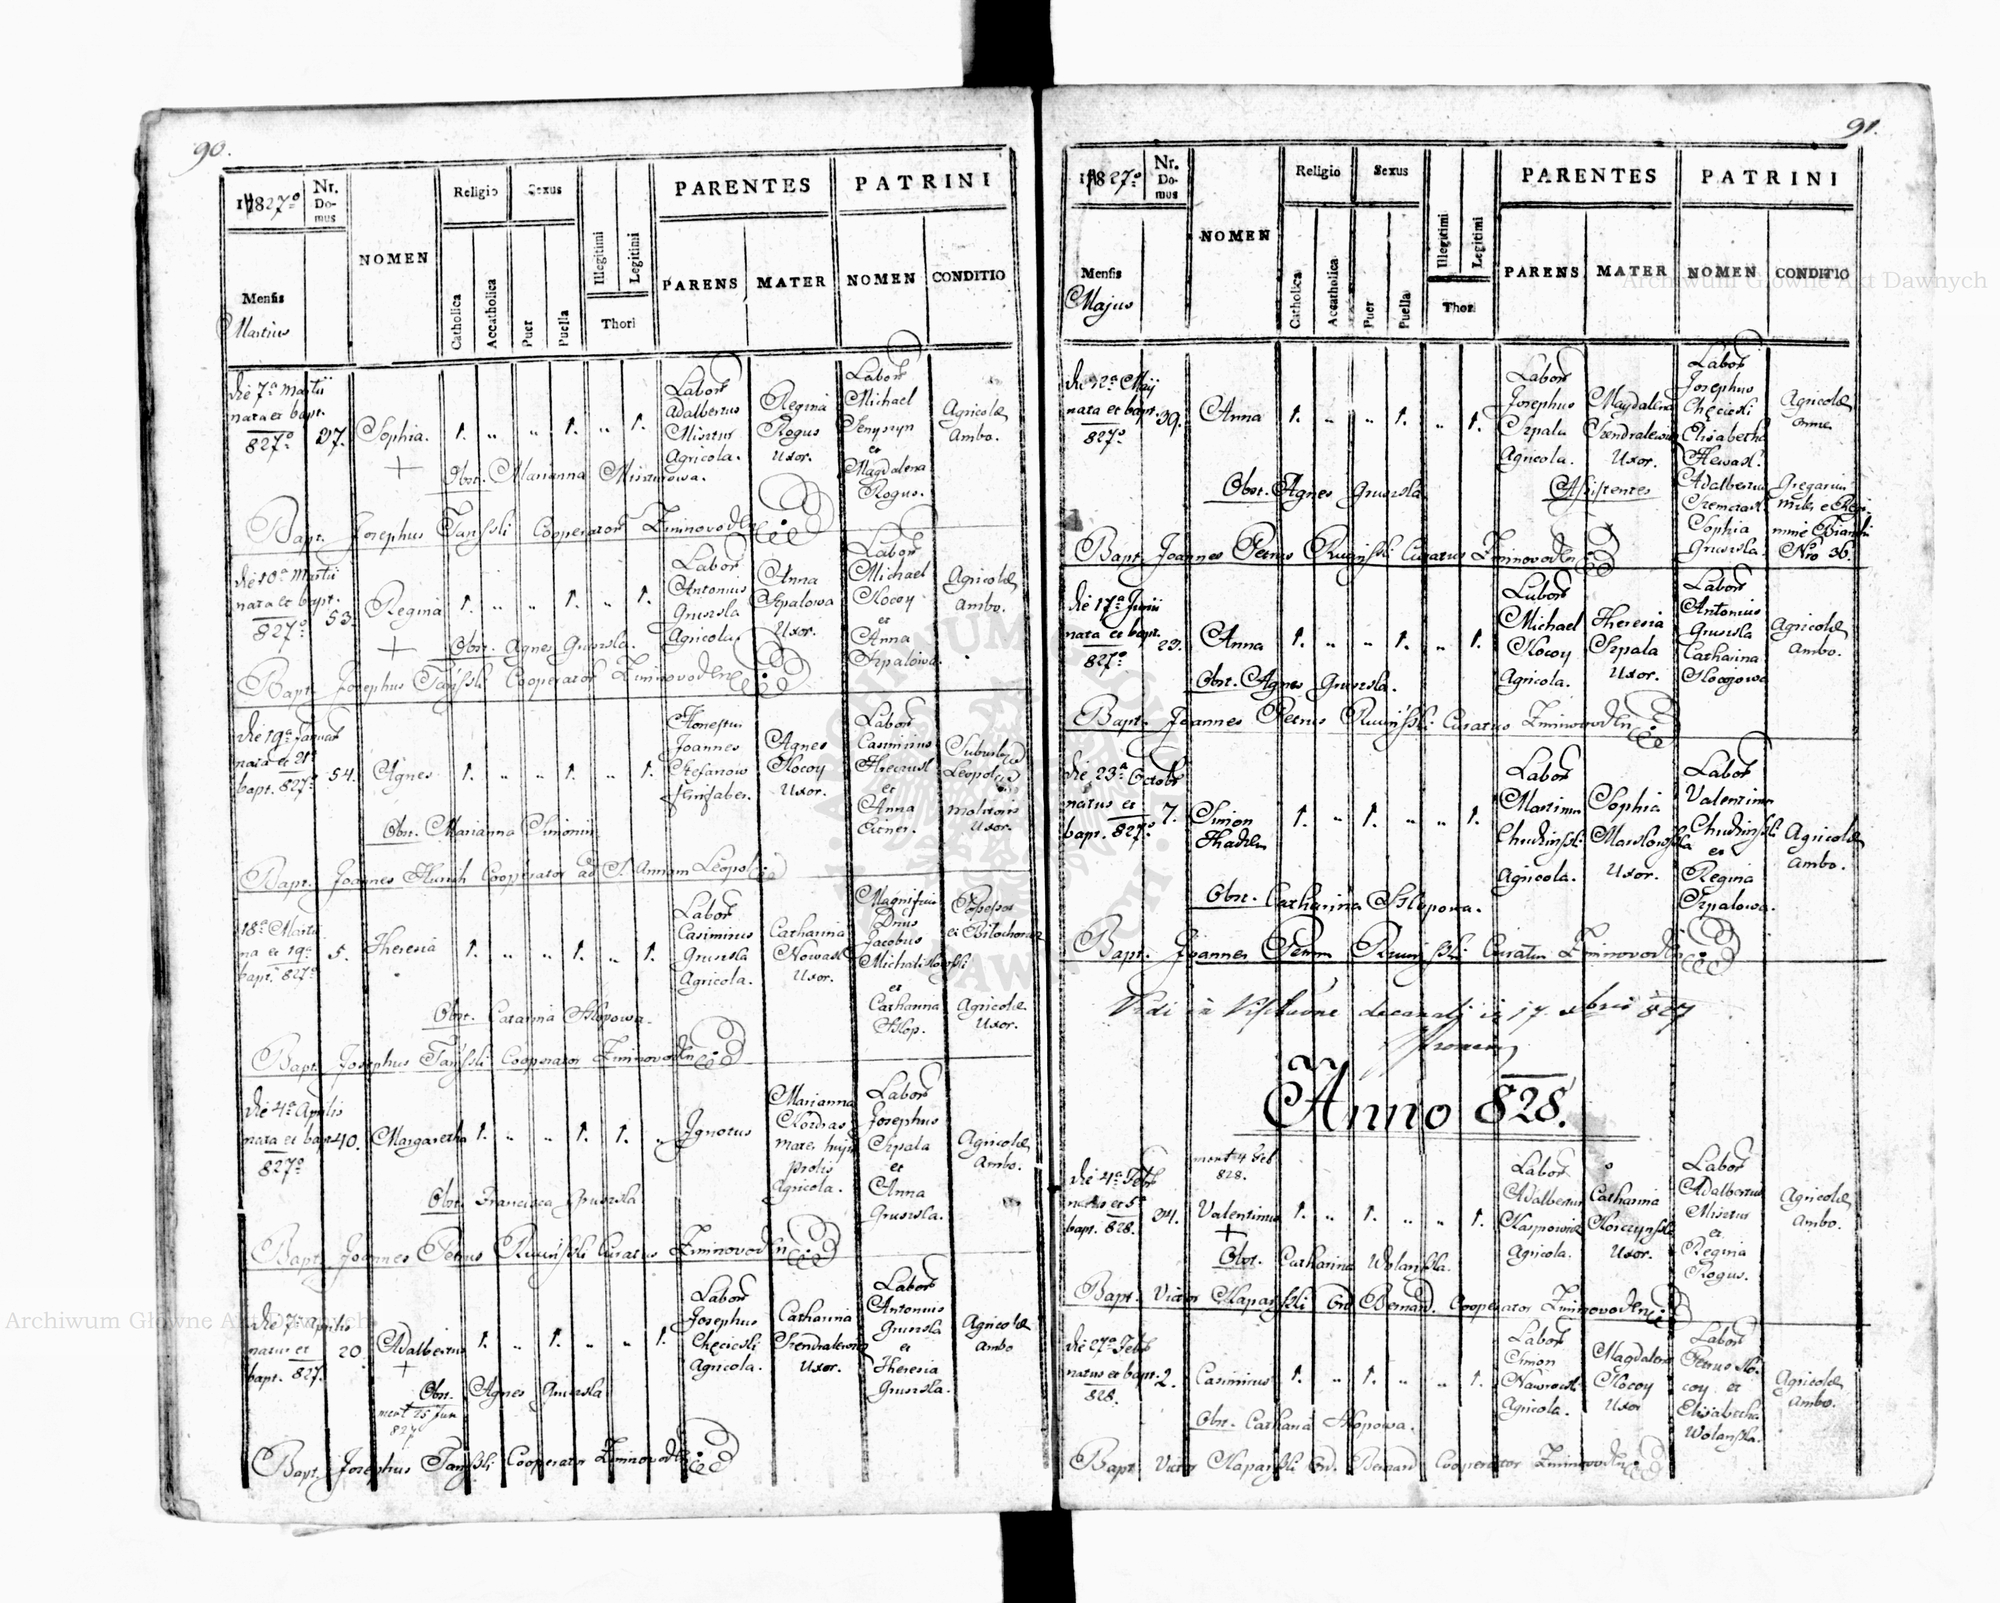 90.
1827º
Nr. Domus
NOMEN
Religio
Sexus
Illegitimi
Legitimi
PARENTES
PATRINI
Mensis
Martius
Catholica
Accatholica
Puer
Puella
Thori
PARENS
MATER
NOMEN
CONDITIO
die 7ª Martii
nata et bapt.
827º
27.
Sophia.
1. „ „ 1. „ 1.
Labor
Adalbertus
Misztur
Agricola.
Regina
Rogus
Uxor.
Labor
Michael
et
Magdalena
Rogus.
Agricolæ
Ambo.
Obst. Marianna Miszturowa.
Bapt. Josephus Tański Cooperator Zimnovod
die 10ª Martii
nata et bapt.
827º
53.
Regina
1. „ „ 1. „ 1.
Labor
Antonius
Gruszla
Agricola
Anna
Szpalowa
Uxor.
Labor
Michael
Kocoy
et
Anna
Szpalowa.
Agricolæ
Ambo.
Obst. Agnes Gruszla.
Bapt. Josephus Tański Cooperator Zimnovod
die 19ª Januar
nata et 21ª
bapt. 827º
54.
Agnes
1. „ „ 1. „ 1.
Honestus
Joannes
Stefanow
Agnes
Kocoy
Uxor.
Labor
Casimirus
et
Anna
Eitner.
Suburb
Leopol
molitoris
Uxor.
Obst. Marianna Simonin
Bapt. Joannes Cooperator ad S. Annam Leopol
18ª Martii
na et 19ª
bapt. 827º
5.
Theresia
1. „ „ 1. „ 1.
Labor
Casimirus
Gruszla
Agricola.
Catharina
Nowak
Uxor.
Magnificus
Dnus
Jacobus
Michalislowski
et
Catharina
Sklop.
Possessor
Agricolæ
Uxor.
Obst. Catarina Sklopowa.
Bapt. Josephus Tański Cooperator Zimnovod
die 4ª Aprilis
nata et bapt.
827º
40.
Margaretha
1. „ „ 1. 1. „
Ignotus
Marianna
Kodras
mater hujus
prolis
Agricola.
Labor
Josephus
Szpala
et
Anna
Gruszla.
Agricolæ
Ambo.
Obst. Francisca Gruszla
Bapt. Joannes Petrus Ruciński Curatus Zimnovod
die 7ª Aprilis
natus et
bapt. 827.
20.
Adalbertus
1. „ 1. „ „ 1.
Labor
Josephus
Chęcieski
Agricola.
Catharina
Szendralewicz
Uxor.
Labor
Antonius
Gruszla
et
Theresia
Gruszla.
Agricolæ
Ambo
Obst. Agnes Gruszla
mort 25 Jun
827
Bapt. Josephus Tański Cooperator Zimnovod
91.
1827º
Nr. Domus
NOMEN
Religio
Sexus
Illegitimi
Legitimi
PARENTES
PATRINI
Mensis
Majus
Catholica
Accatholica
Puer
Puella
Thori
PARENS
MATER
NOMEN
CONDITIO
die 12ª Maij
nata et bapt.
827º
39.
Anna
1. „ „ 1. „ 1.
Labor
Josephus
Szpala
Agricola.
Magdalena
Szendralewicz
Uxor.
Labor
Josephus
Chęcieski
Elisabetha
Adalbertus
Sophia
Gruszla
Agricolæ
omnes
Gregarius
Nro 36.
Obst. Agnes Gruszla
Assistentes
Bapt. Joannes Petrus Ruciński Curatus Zimnovod
die 17ª Junii
nata et bapt.
827º
23.
Anna
1. „ „ 1. „ 1.
Labor
Michael
Kocoy
Agricola.
Theresia
Szpala
Uxor.
Labor
Antonius
Gruszla
Catharina
Agricolæ
Ambo.
Obst. Agnes Gruszla.
Bapt. Joannes Petrus Ruciński Curatus Zimnovod
die 23ª Octobr
natus et
bapt. 827º
7.
Simon
Thadæus
1. „ 1. „ „ 1.
Labor
Martinus
Chudziński
Agricola.
Sophia
Maslowska
Uxor.
Labor
Valentinus
Chudziński
et
Regina
Szpalowa.
Agricolæ
Ambo.
Obst. Catharina Sklopowa.
Bapt. Joannes Petrus Ruciński Curatus Zimnovod
Vidi in decanali 17 827
Anno 828.
die 4ª Febr
natus et 5ª
bapt. 828.
34.
mort 4 Feb
828.
Valentinus
1. „ 1. „ „ 1.
Labor
Adalbertus
Kasprowicz
Agricola.
Catharina
Korczyńska
Uxor.
Labor
Adalbertus
Misztur
et
Regina
Rogus.
Agricolæ
Ambo.
Obst. Catharina Wolańska.
Bapt. Victor Kapański Ord. Bernard. Cooperator Zimnovod
die 27ª Febr
natus et bapt.
828.
2.
Casimirus
1. „ 1. „ „ 1.
Labor
Simon
Nawrocki
Agricola.
Magdalena
Kocoy
Uxor
Labor
Petrus Ko-
coy et
Elisabetha
Wolańska.
Agricolæ
Ambo.
Obst. Cathana Sklopowa.
Bapt. Victor Kapański Ord. Bernard Cooperator Zimnovod
Archiwum Główne Akt Dawnych
Archiwum Główne Akt Dawnych